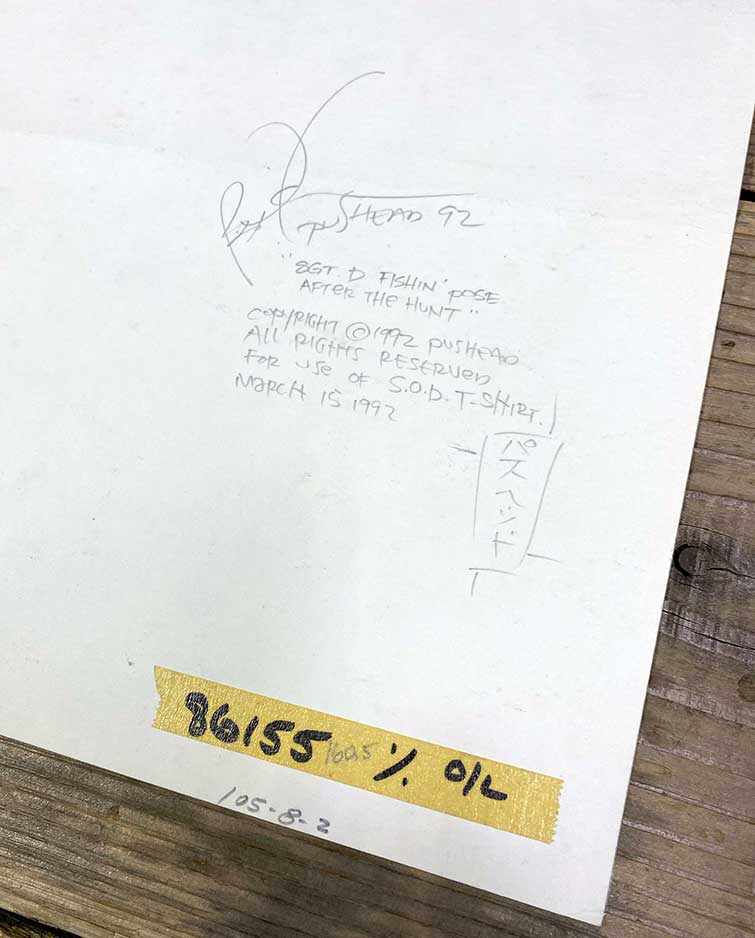 PUSHEAD 92
"SGT. D FISHIN' POSE
AFTER THE HUNT"
COPYRIGHT © 1992 PUSHEAD
ALL RIGHTS RESERVED
FOR USE OF S.O.D. T-SHIRT.
MARCH 15 1992
パスヘッド
86155 160.5 % O/L
105-8-2